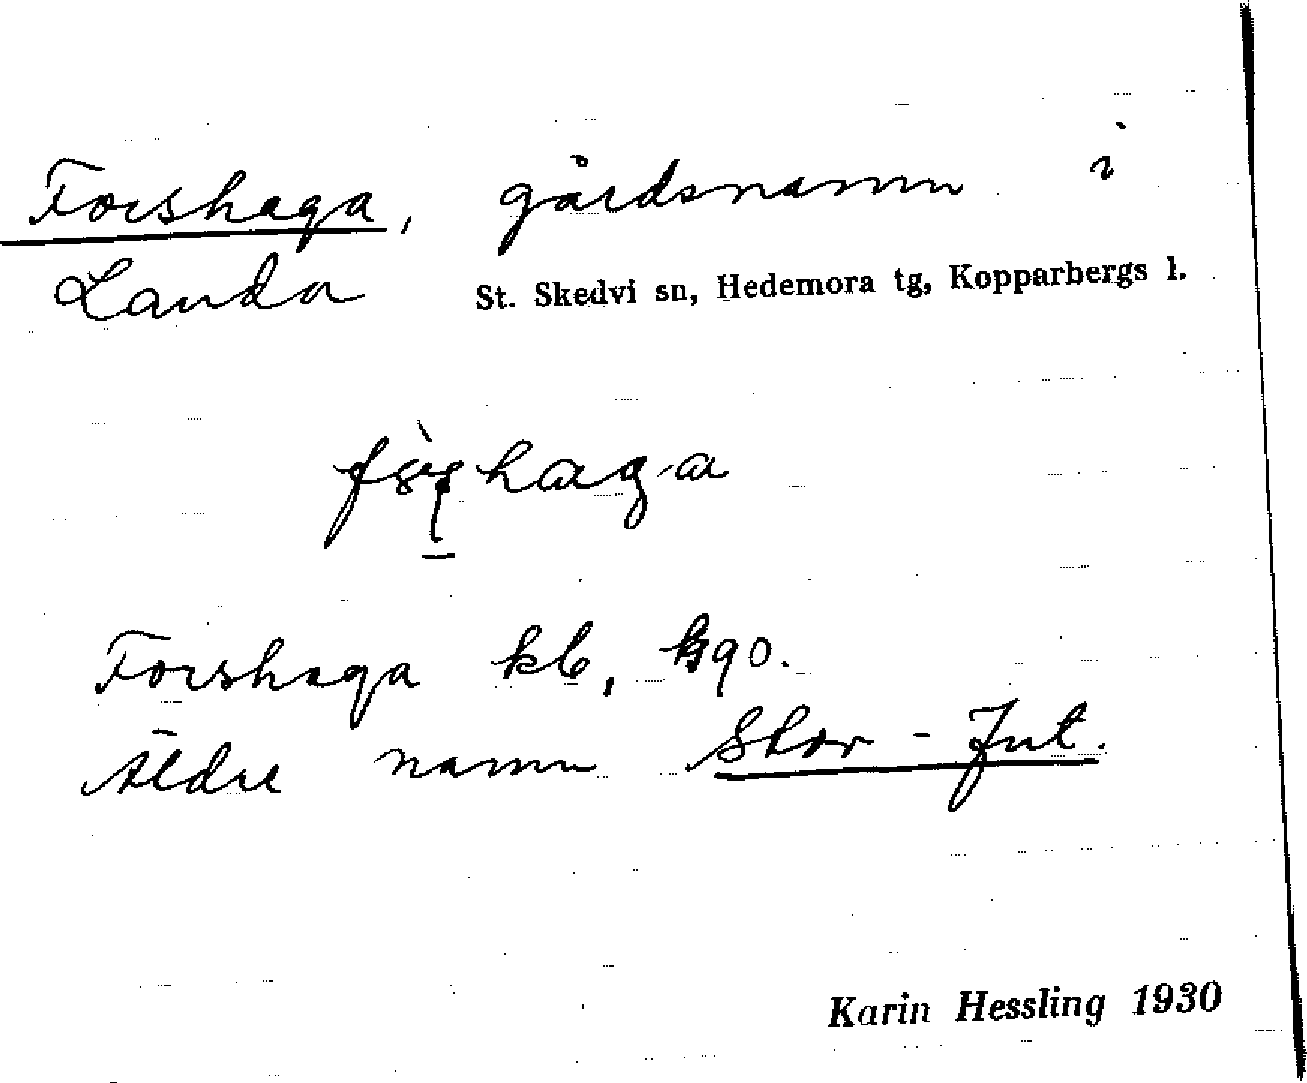 Forshaga, gårdsnamn i
Landa St. Skedvi sn, Hedemora tg, Kopparbergs l.
Forshaga kb,
Äldre namn Stor-Jut.
Karin Hessling 1930